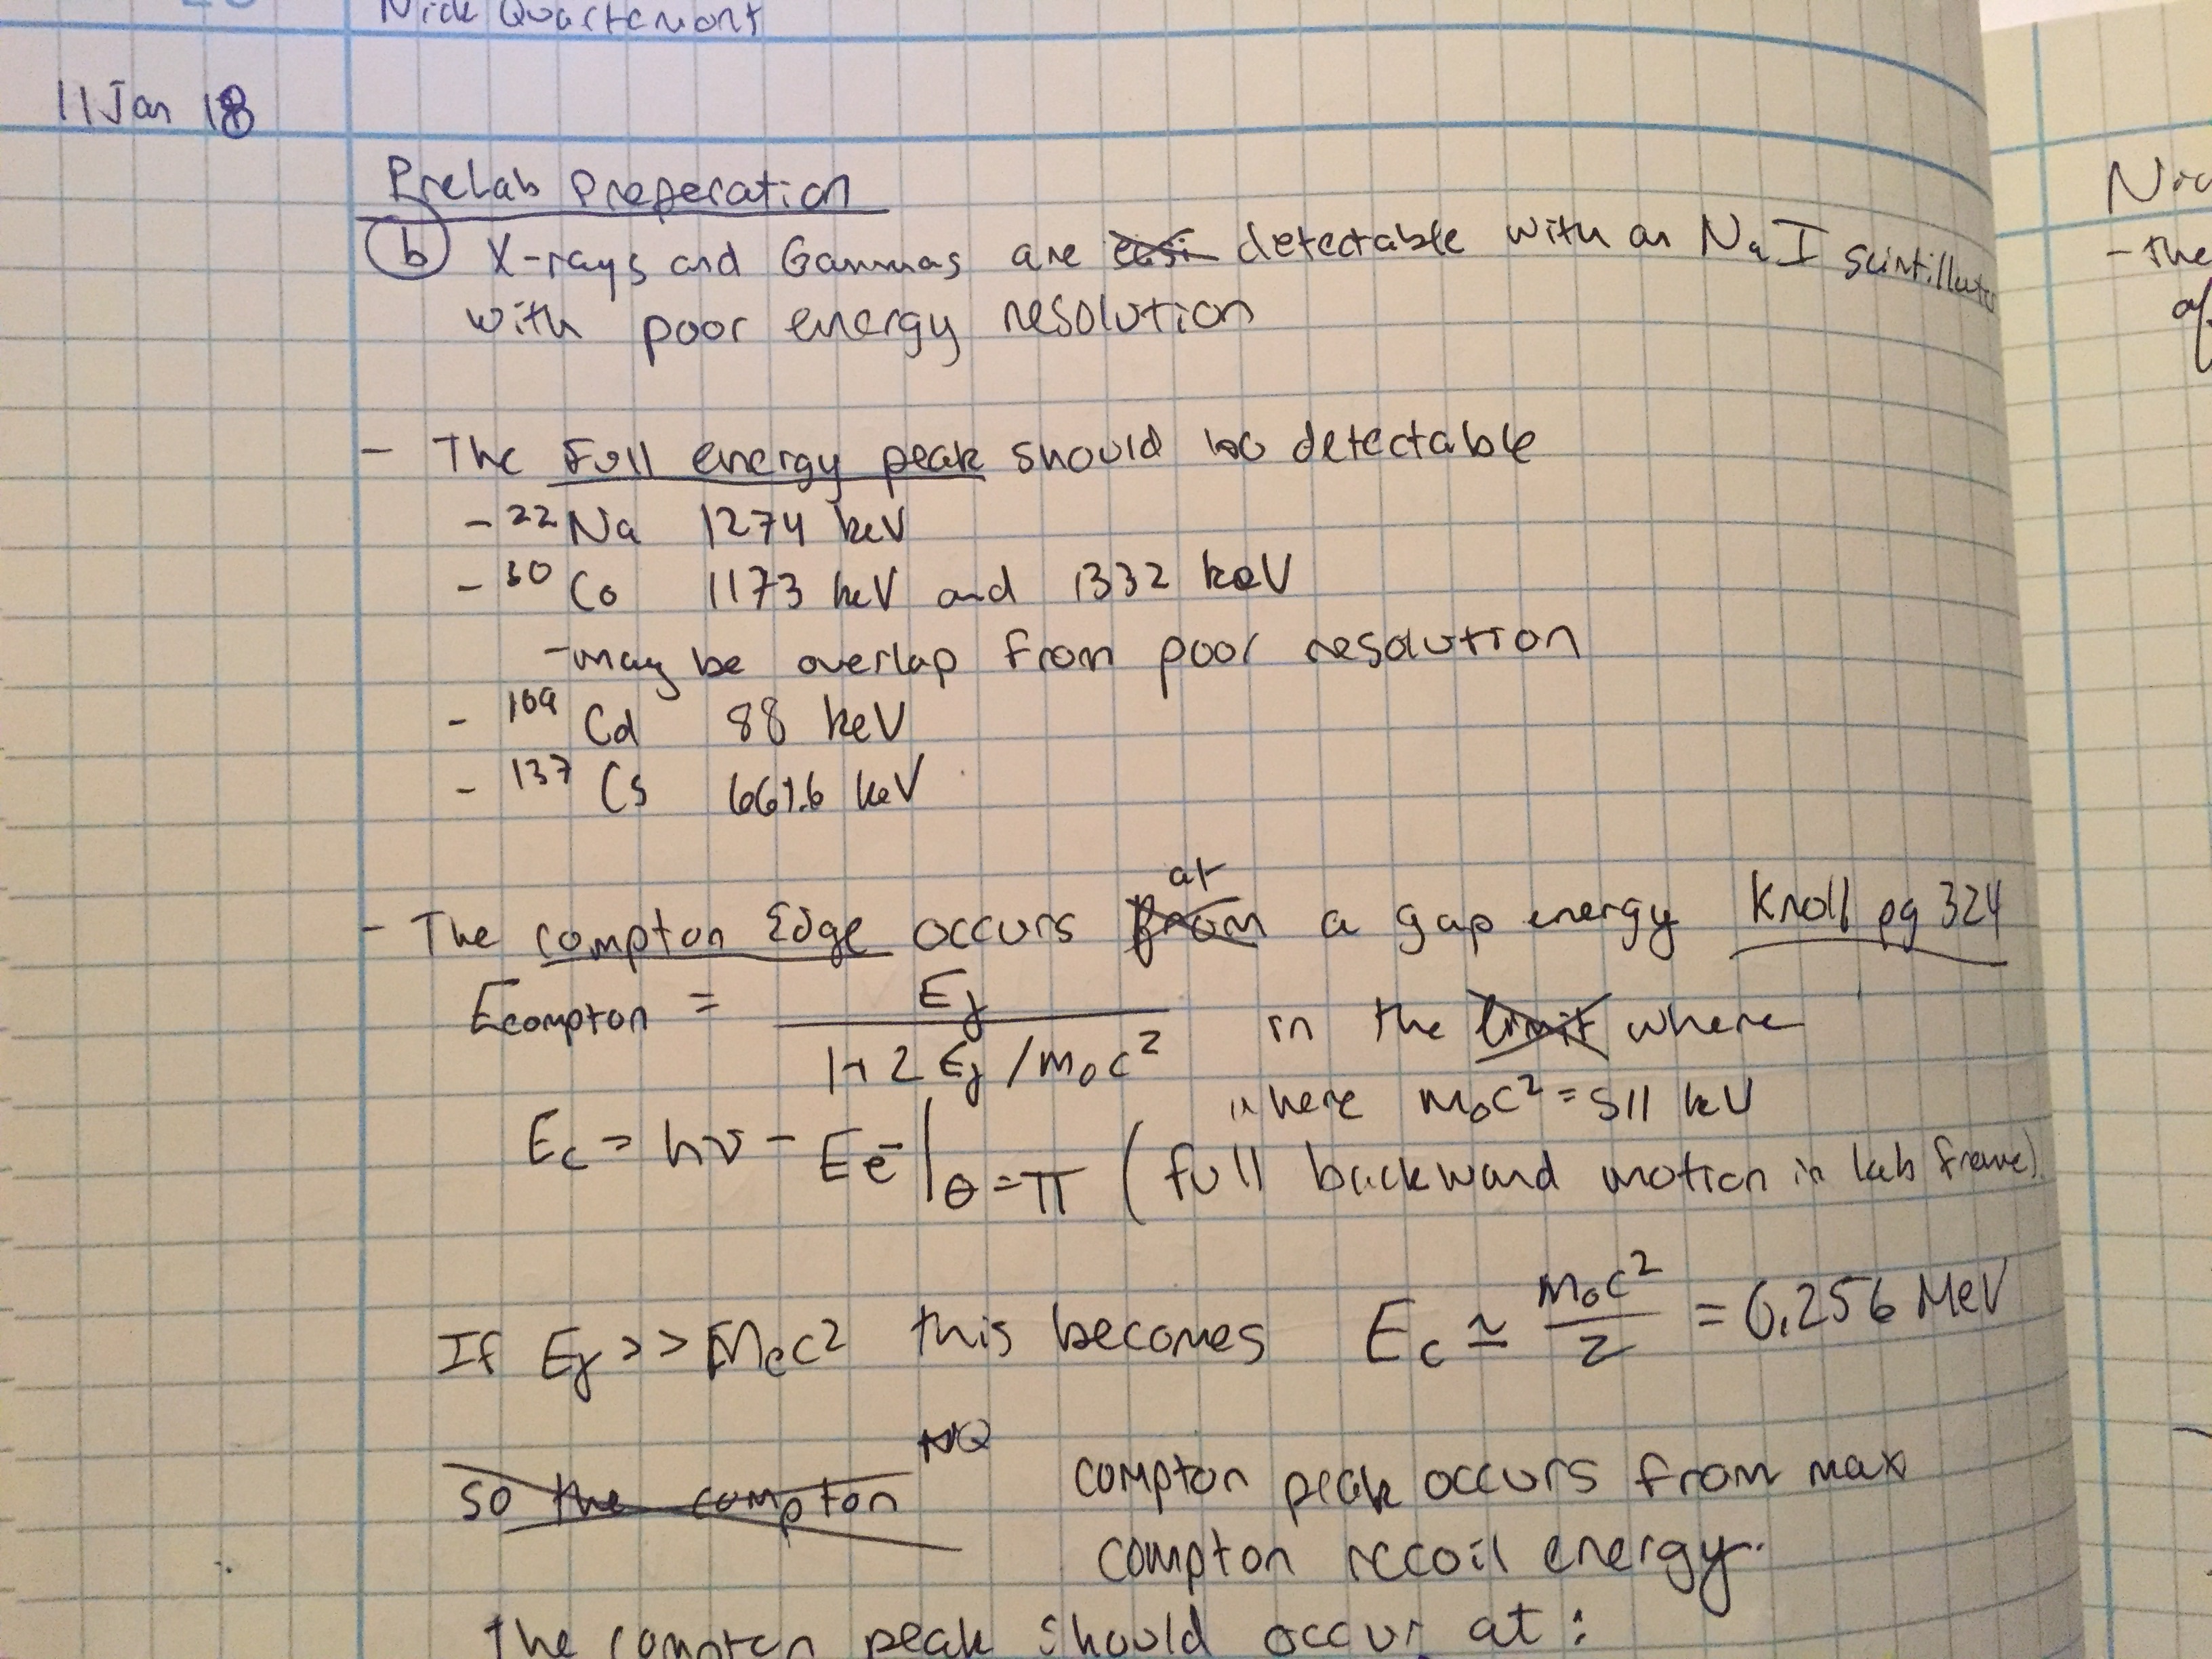 Nick Quartemont
11 Jan 18
PreLab Preperation
(b) X-rays and Gammas are easi detectable with an NaI scintillator
with poor energy resolution
- The Full energy peak should be detectable
- ²²Na 1274 keV
- ⁶⁰Co 1173 keV and 1332 keV
- may be overlap from poor resolution
- ¹⁰⁹Cd 88 keV
- ¹³⁷Cs 661.6 keV
at
- The compton Edge occurs from a gap energy Knoll pg 324
Ecompton = Eγ / (1+2 Eγ/m₀c²) in the limit where
where m₀c² = 511 keV
Ec = hν - Ee⁻|θ=π (full backward motion in lab frame)
If Eγ >> Mec² this becomes Ec ≃ m₀c²/2 = 0.256 MeV
NQ
so the compton compton peak occurs from max
compton recoil energy.
The compton peak should occur at:
- the